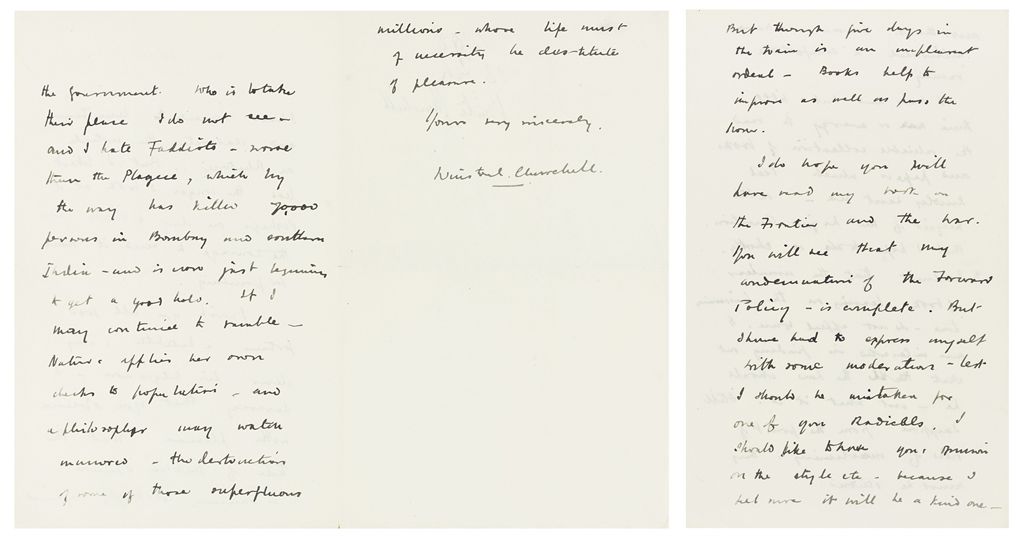 the government. Who is to take
their place I do not see –
and I hate Faddists – worse
than the Plague, which by
the way has killed 70,000
persons in Bombay and southern
India – and is now just beginning
to get a good hold. If I
may continue to ramble –
Nature applies her own
checks to population – and
a philosopher may watch
unmoved – the destruction
of some of those superfluous
millions – whose life must
of necessity be destitute
of pleasure.
Yours very sincerely,
Winston S. Churchill.
But though five days in
the train is an unpleasant
ordeal – Books help to
improve as well as pass the
hour.
I do hope you will
have read my work on
the Frontier and the war.
You will see that my
condemnation of the Forward
Policy – is complete. But
I have had to express myself
with some moderation – lest
I should be mistaken for
one of your Radicals. I
should like to have your opinion
on the style etc – because I
feel sure it will be a kind one –